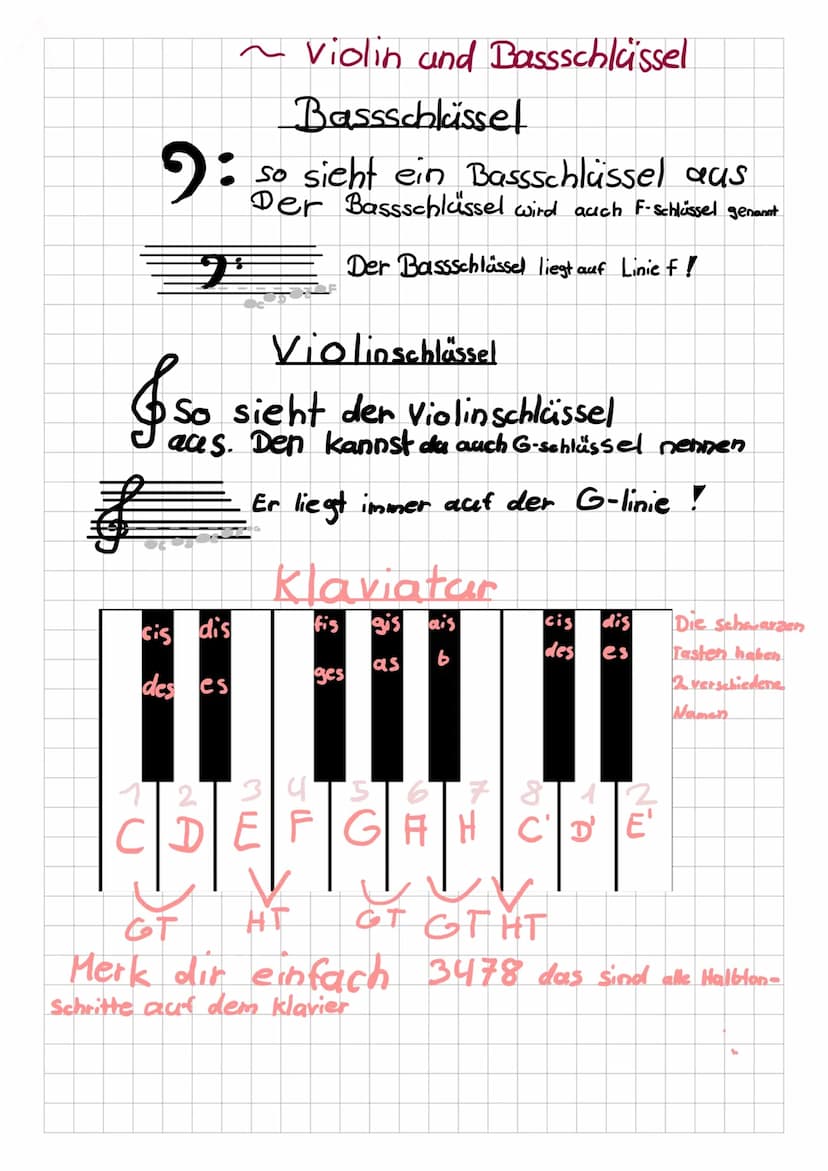 ~ Violin und Bassschlüssel
Bassschlüssel
so sieht ein Bassschlüssel aus
Der Bassschlüssel wird auch F-Schlüssel genannt
Der Bassschlüssel liegt auf Linie f!
Violinschlüssel
So sieht der Violinschlüssel
aus. Den kannst du auch G-schlüssel nennen
Er liegt immer auf der G-linie!
Klaviatur
cis dis fis gis ais cis dis
des es ges as b des es
Die schwarzen
Tasten haben
2 verschiedene
Namen
1 2 3 4 5 6 7 8 1 2
C D E F G A H C' D' E'
GT HT GT GT HT
Merk dir einfach 3478 das sind alle Halbton-
Schritte auf dem Klavier